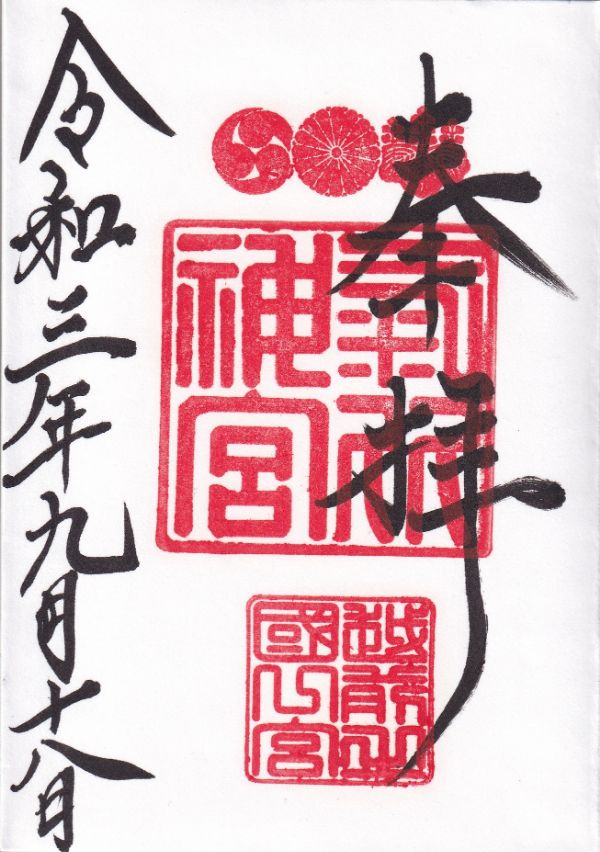 奉拝
神宮
越前
國
宮
令和三年九月十八日